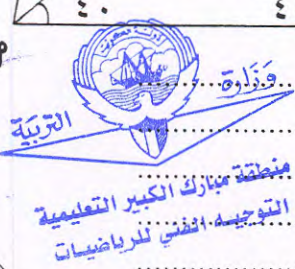 ٤٠
٤
م
دولة الكويت
وزارة
التربية
منطقة مبارك الكبير التعليمية
التوجيه الفني للرياضيات